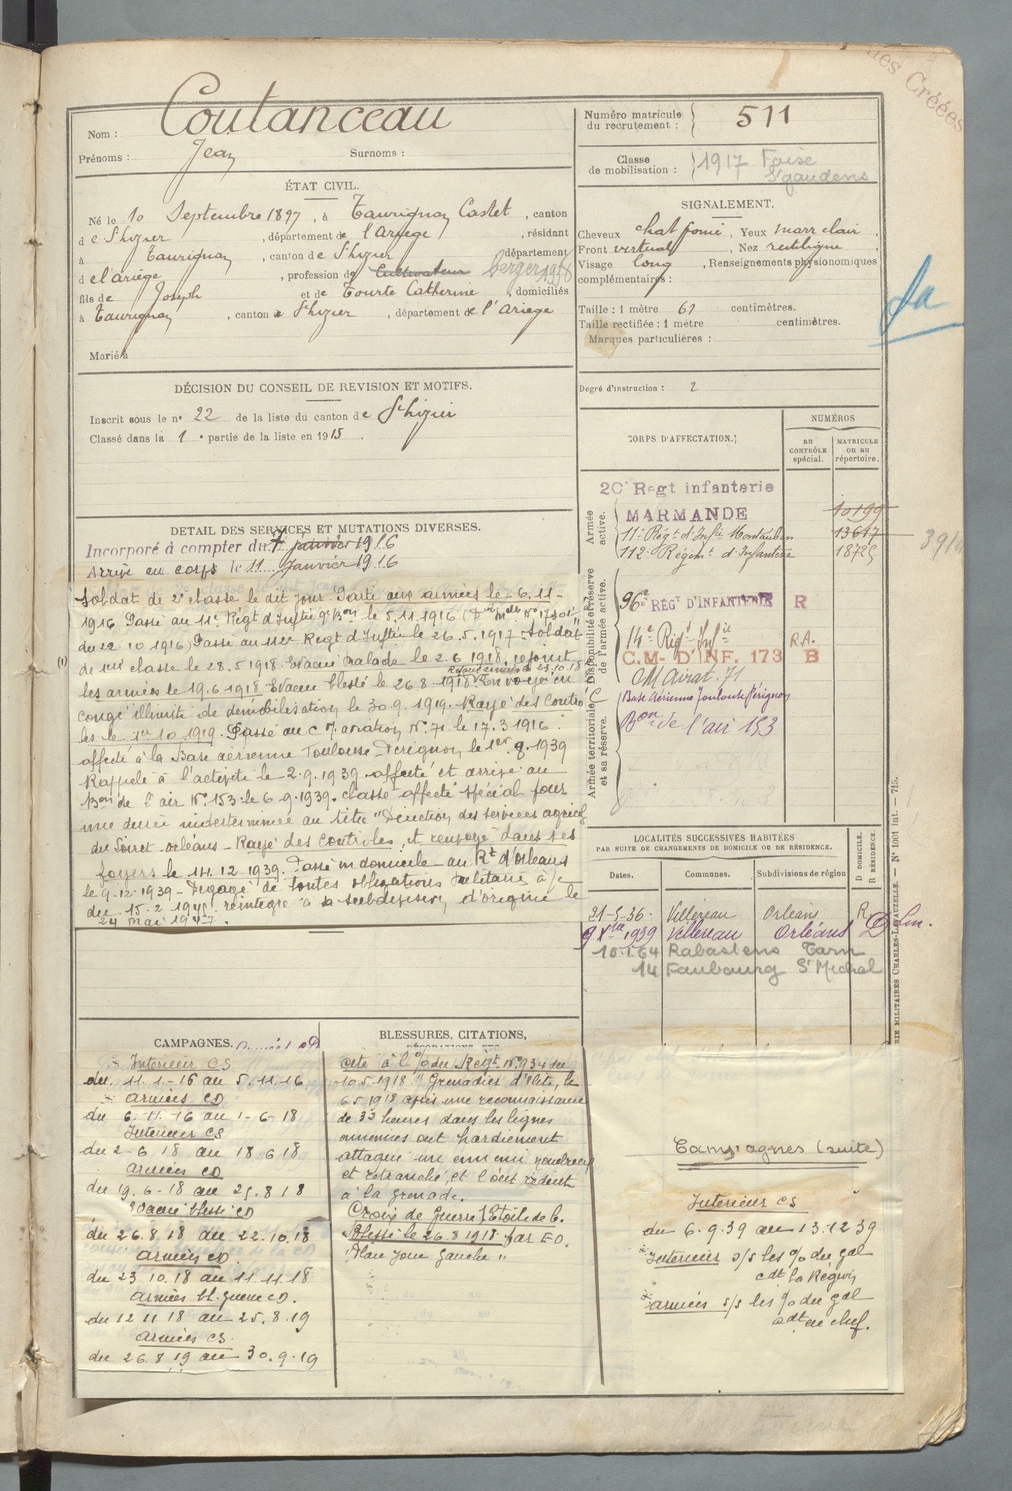 Nom : Coutanceau
Prénoms : Jean Surnoms :
Numéro matricule du recrutement : 511
Classe de mobilisation : 1917 Foix
St Gaudens
ÉTAT CIVIL.
Né le 10 Septembre 1897, à Taurignan Castet, canton
de St Lizier, département de l'Ariège, résidant
à Taurignan, canton de St Lizier, département
d el'ariège, profession de Cultivateur berger 1918
fils de Joseph et de Tourte Catherine, domiciliés
à Taurignan, canton de St Lizier, département de l'Ariège
Marié à
SIGNALEMENT.
Cheveux chat foncé, Yeux marr clair,
Front vertical, Nez rectiligne
Visage long, Renseignements physionomiques
complémentaires :
Taille : 1 mètre 61 centimètres.
Taille rectifiée : 1 mètre centimètres.
Marques particulières :
Degré d'instruction : 2
DÉCISION DU CONSEIL DE REVISION ET MOTIFS.
Inscrit sous le n° 22 de la liste du canton de St Lizier
Classé dans la 1e partie de la liste en 1915
DETAIL DES SERVICES ET MUTATIONS DIVERSES.
Incorporé à compter du 7 janvier 1916
Arrivé au corps le 11 janvier 1916
Soldat de 2e classe le dit jour. Parti aux armées le 6-11-
1916 Passé au 11e Régt d'Inftie 9e Bon le 5.11.1916
du 22 10 1916) Passé au 112e Regt d'Inftie le 26.5.1917 Soldat
de 1ère classe le 28.5.1918. Evacué malade le 2.6.1918, rejoint
les armées le 19.6.1918 Evacué blessé le 26 8 1918 Envoyé en
congé illimité de démobilisation le 30.9.1919. Rayé des contrô
les le 1er 10 1919. Passé au C M. aviation N° 71 le 17.3 1916
affecté à la Base aérienne Toulouse Perignon le 1er 8. 1939
Rappelé à l'activité le 2.9.1939. affecté et arrivé au
Bon de l'air N° 153 le 6.9.1939. Classé affecté spécial pour
une durée indéterminée au titre "Direction des services agricol
du Loiret Orléans. Rayé des contrôles, et renvoyé dans ses
foyers le 14.12 1939. Passé en domicile au Rt d'Orléans
le 9.12.1939 - Dégagé de toutes obligations militaires à /c
du 15.2.1941 réintégré à sa subdivision d'origine le
24 mai 1947.
CORPS D'AFFECTATION.
NUMÉROS
AU CONTRÔLE spécial.
MATRICULE OU AU répertoire.
Armée active.
20e Régt infanterie
MARMANDE 10199
11e Régt d'Inftie Montauban 13617
112e Régimt d'Infanterie 18725
Disponibilité et réserve de l'armée active.
96e RÉGT D'INFANTERIE R
14e Régt Infie R.A.
C.M. D'INF. 173 B
CM Aviat. 71
Armée territoriale et sa réserve.
Base Aérienne Toulouse Pérignon
Bon de l'air 153
LOCALITÉS SUCCESSIVES HABITÉES
PAR SUITE DE CHANGEMENTS DE DOMICILE OU DE RÉSIDENCE.
Dates. Communes. Subdivisions de région D DOMICILE. R RÉSIDENCE.
21-5-36. Villereau Orléans R
9 Xbre 1939 Villereau Orléans D
10.1.64 Rabastens Tarn
14 Faubourg St Michel
CAMPAGNES.
Intérieur CS
du 11.1.-16 au 5.11.16
armées CD
du 6-11-16 au 1-6-18
Intérieur CS
du 2-6 18 au 18 6 18
armées CD
du 19.6-18 au 25.8 18
Evacué blessé CD
du 26.8 18 au 22.10.18
armées CD
du 23 10.18 au 11.11.18
armées bl. guerre CD.
du 12 11 18 au 25.8.19
armées CS.
du 26.8 19 au 30.9.19
BLESSURES, CITATIONS,
Cité à l'O/ du Régt N° 934 du
10.5.1918 "Grenadier d'élite, le
6.5.1918 après une reconnaissance
de 33 heures dans les lignes
ennemies ont hardiement
attaqué un ennemi nombreux
et retranché, et l'ont réduit
à la grenade.
Croix de Guerre, Etoile de b.
Blessé le 26.8.1918 par EO.
"Plaie joue gauche"
Campagnes (suite)
Intérieur CS
du 6.9.39 au 13.12 39
Intérieur s/s les O/ du gal
cdt la Région
armées s/s les O/ du gal
cdt en chef.